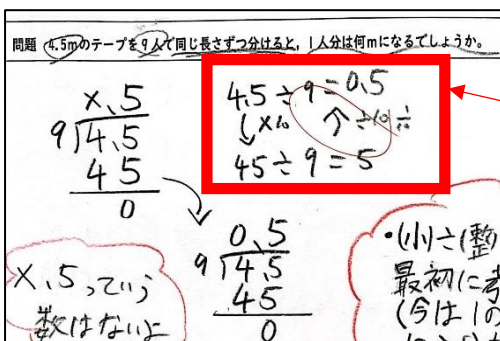 問題 4.5mのテープを9人で同じ長さずつ分けると,1人分は何mになるでしょうか。
4.5÷9=0.5
×10 ÷10 1/10
45÷9=5
×.5
9)4.5
45
0
0.5
9)4.5
45
0
×.5っていう
数はないよ
・(小)÷(整
最初に考
(今は1の